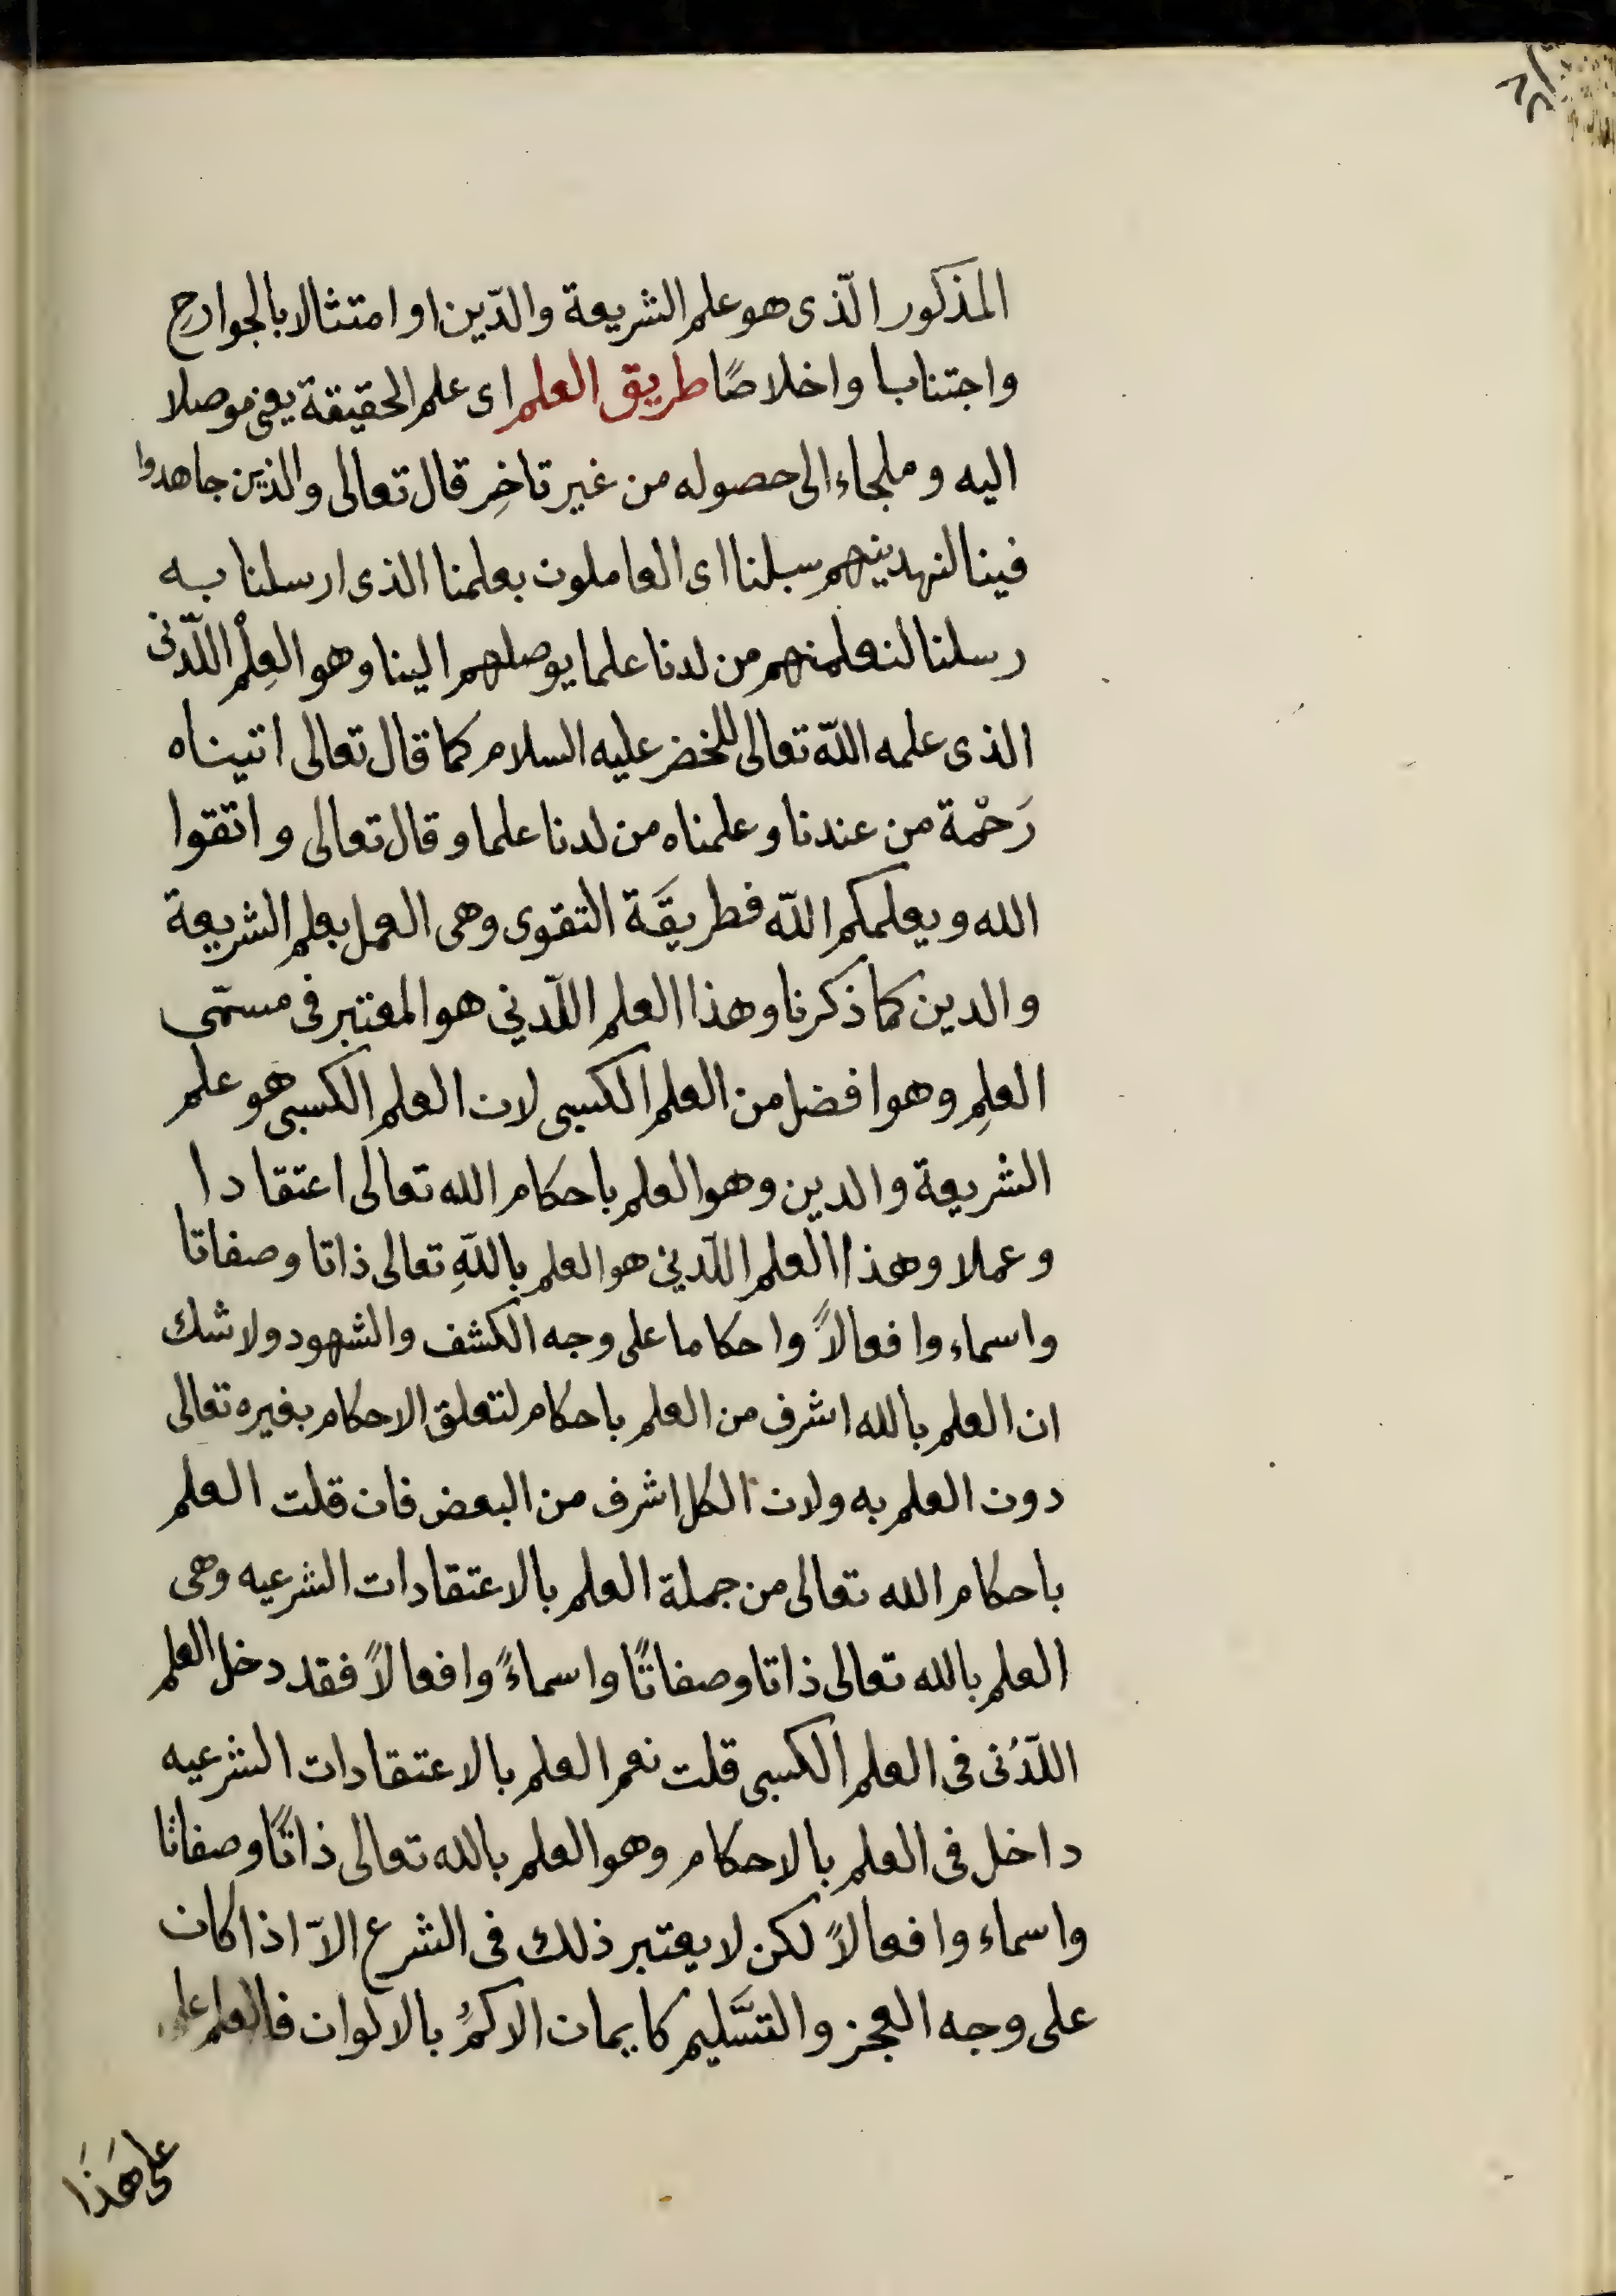 المذكور الّذى هو علم الشريعة والدّين او امتثالا بالجوارح
واجتنابا واخلاصًا طريق العلم اى علم الحقيقة يعنى موصلا
اليه وملجاء الى حصوله من غير تاخِر قال تعالى والذين جاهدوا
فينا لنهدينهم سبلنا اى العاملون بعلمنا الذى ارسلنا به
رسلنا لنعلمنهم من لدنا علما يوصلهم الينا وهو العِلْم اللّدنى
الذى علمه اللّه تعالى للخضر عليه السلام كما قال تعالى اتيناه
رَحْمة من عندنا وعلمناه من لدنا علما وقال تعالى واتقوا
الله ويعلمكم اللّه فطريقَة التقوى وهى العمل بعلم الشريعة
والدين كما ذكرنا وهذا العلم اللّدني هو المعتبر فى مسمّى
العلمِ وهو افضل من العلم الكسبى لان العلم الكسبى هو علم
الشريعة والدين وهو العلم باحكام الله تعالى اعتقادا
وعملا وهذا العلم اللّدني هو العلم باللّهِ تعالى ذاتا وصفاتا
واسماء وافعالاً واحكاما على وجه الكشف والشهود ولاشك
ان العلم بالله اشرف من العلم باحكام لتعلق الاحكام بغيره تعالى
دون العلم به ولان الكل اشرف من البعض فان قلت العلم
باحكام الله تعالى من جملة العلم بالاعتقادات الشرعيه وهى
العلم بالله تعالى ذاتا وصفاتًا واسماءً وافعالاً فقد دخل العلم
اللّدُنى فى العلم الكسبى قلت نعم العلم بالاعتقادات الشرعيه
داخل فى العلم بالاحكام وهو العلم بالله تعالى ذاتًا وصفاتا
واسماء وافعالاً لكن لايعتبر ذلك فى الشرع الاّ اذا كان
على وجه العجز والتسَّليم كايمان الاكمُ بالالوان فالعلم على
على هَذَا